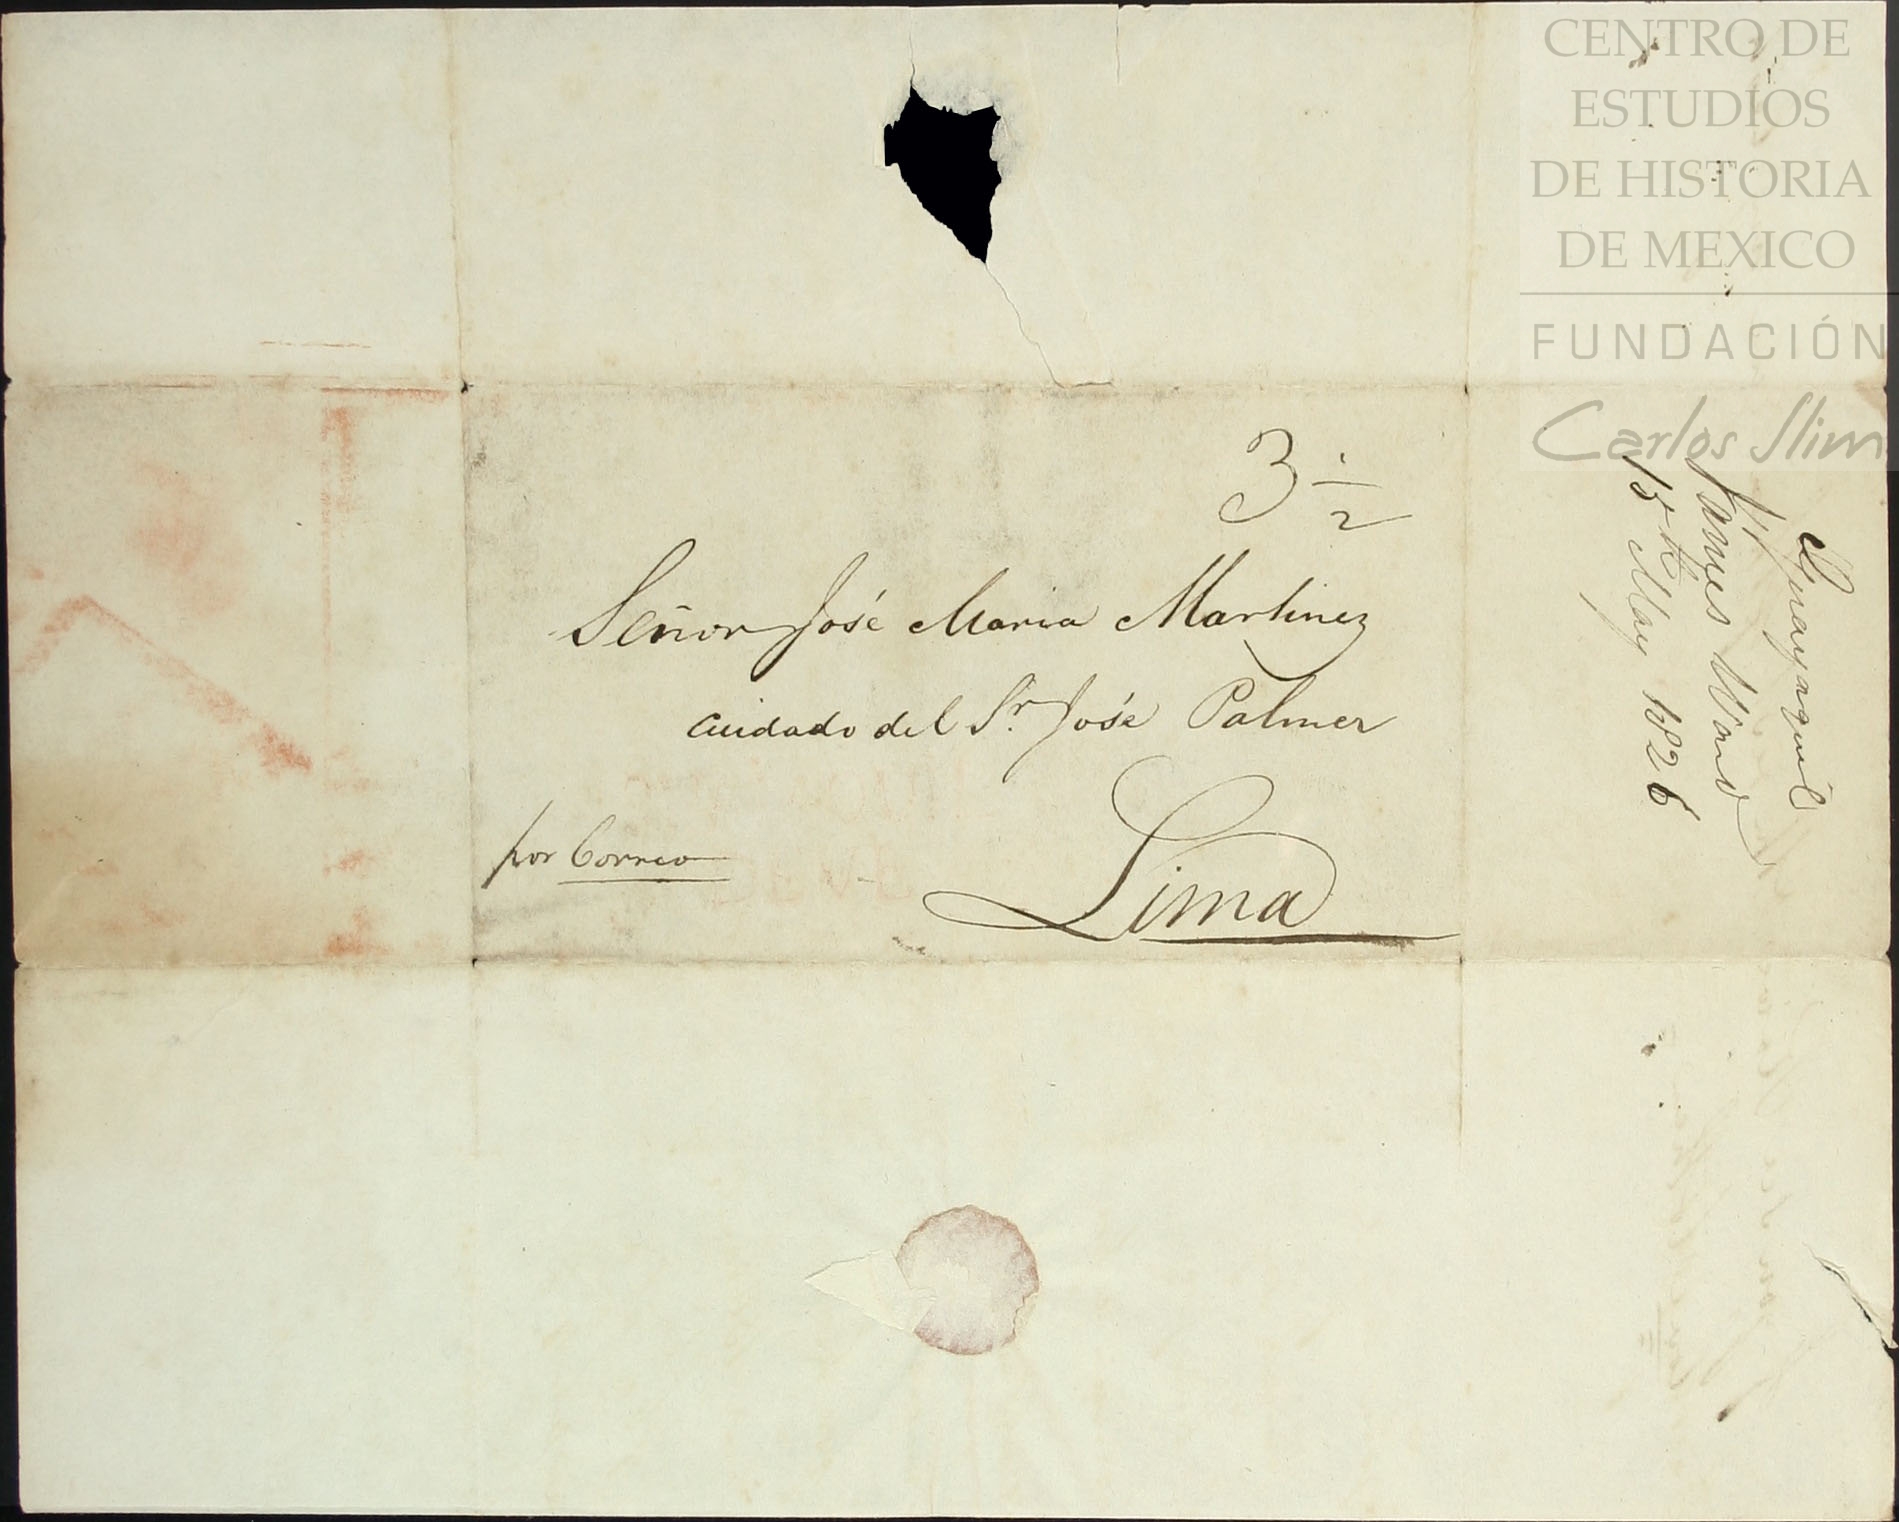 CENTRO DE
ESTUDIOS
DE HISTORIA
DE MEXICO
FUNDACIÓN
Carlos Slim
3 1/2
Señor José Maria Martinez
cuidado del Sr. José Palmer
por Correo
Lima
Guayaquil
James Wood
15th May 1826